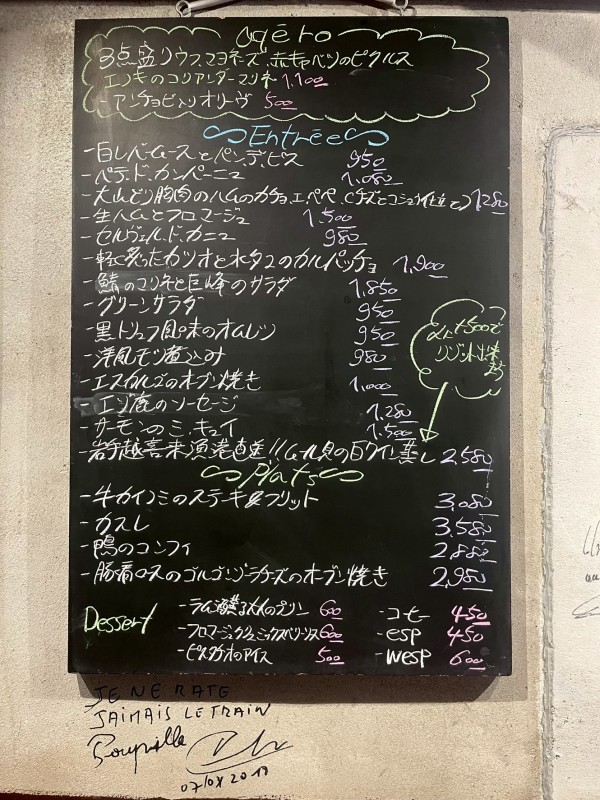 apéro
3点盛りウフマヨネーズ、赤キャベツのピクルス
エリンギのコリアンダーマリネ 1,100
- アンチョビ入りオリーヴ 500
Entrée
- 白レバームースとパン・デピス 950
- パテ・ド・カンパーニュ 1,080
- 大山どり胸肉のハムのカチョ・エ・ペペ(チーズとコショウ仕立て) 1,280
- 生ハムとフロマージュ 1,500
- セルヴェル・ド・カニュ 980
- 軽く炙ったカツオと水タコのカルパッチョ 1,900
- 鯖のマリネと巨峰のサラダ 1,850
- グリーンサラダ 950
- 黒トリュフ風味のオムレツ 950
- 洋風モツ煮込み 980
- エスカルゴのオーブン焼き 1,000
- エゾ鹿のソーセージ 1,280
- サーモンのミ・キュイ 1,500
- 岩手越喜来漁港直送!!ムール貝の白ワイン蒸し 2,580
+500で
リゾット出来
ます
Plats
- 牛カイノミのステーキ&フリット 3,080
- カスレ 3,580
- 鴨のコンフィ 2,880
- 豚肩ロースのゴルゴンゾーラチーズのオーブン焼き 2,980
Dessert
- ラム酒薫る大人のプリン 600
- フロマージュクリュミックスベリーソース 600
- ピスタチオのアイス 500
- コーヒー 450
- esp 450
- Wesp 600
JE NE RATE
JAIMAIS LE TRAIN